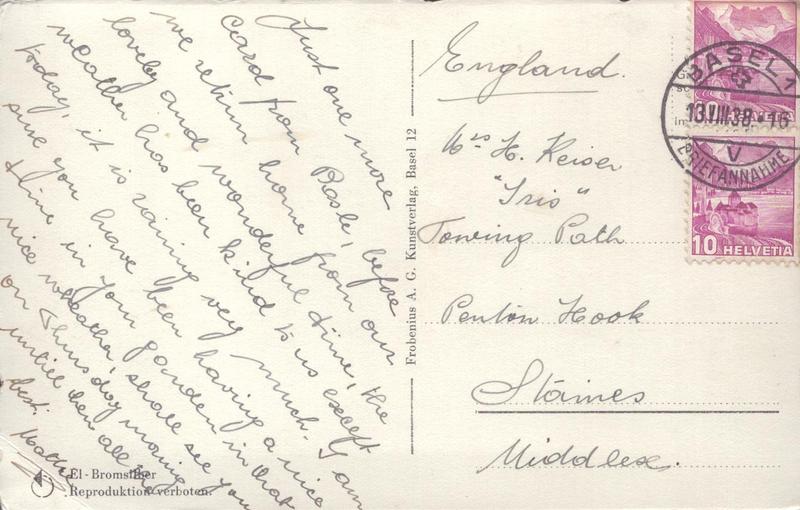 Just one more
card from Basle, before
we return home from our
lovely and wonderful time, the
weather has been kind to us except
today, it is raining very much. I am
sure you have been having a nice
time in your garden in that
nice wheather, shall see you
on Thursday morning
untill then all the
best.
El-Bromsilber
Reproduktion verboten.
Frobenius A. G. Kunstverlag, Basel 12
England.
Mrs H. Keiser
"Iris"
Towing Path
Penton Hook
Staines
Middlex.
BASEL 1
13.VIII.38-16
V
BRIEFANNAHME
HELVETIA
10 HELVETIA